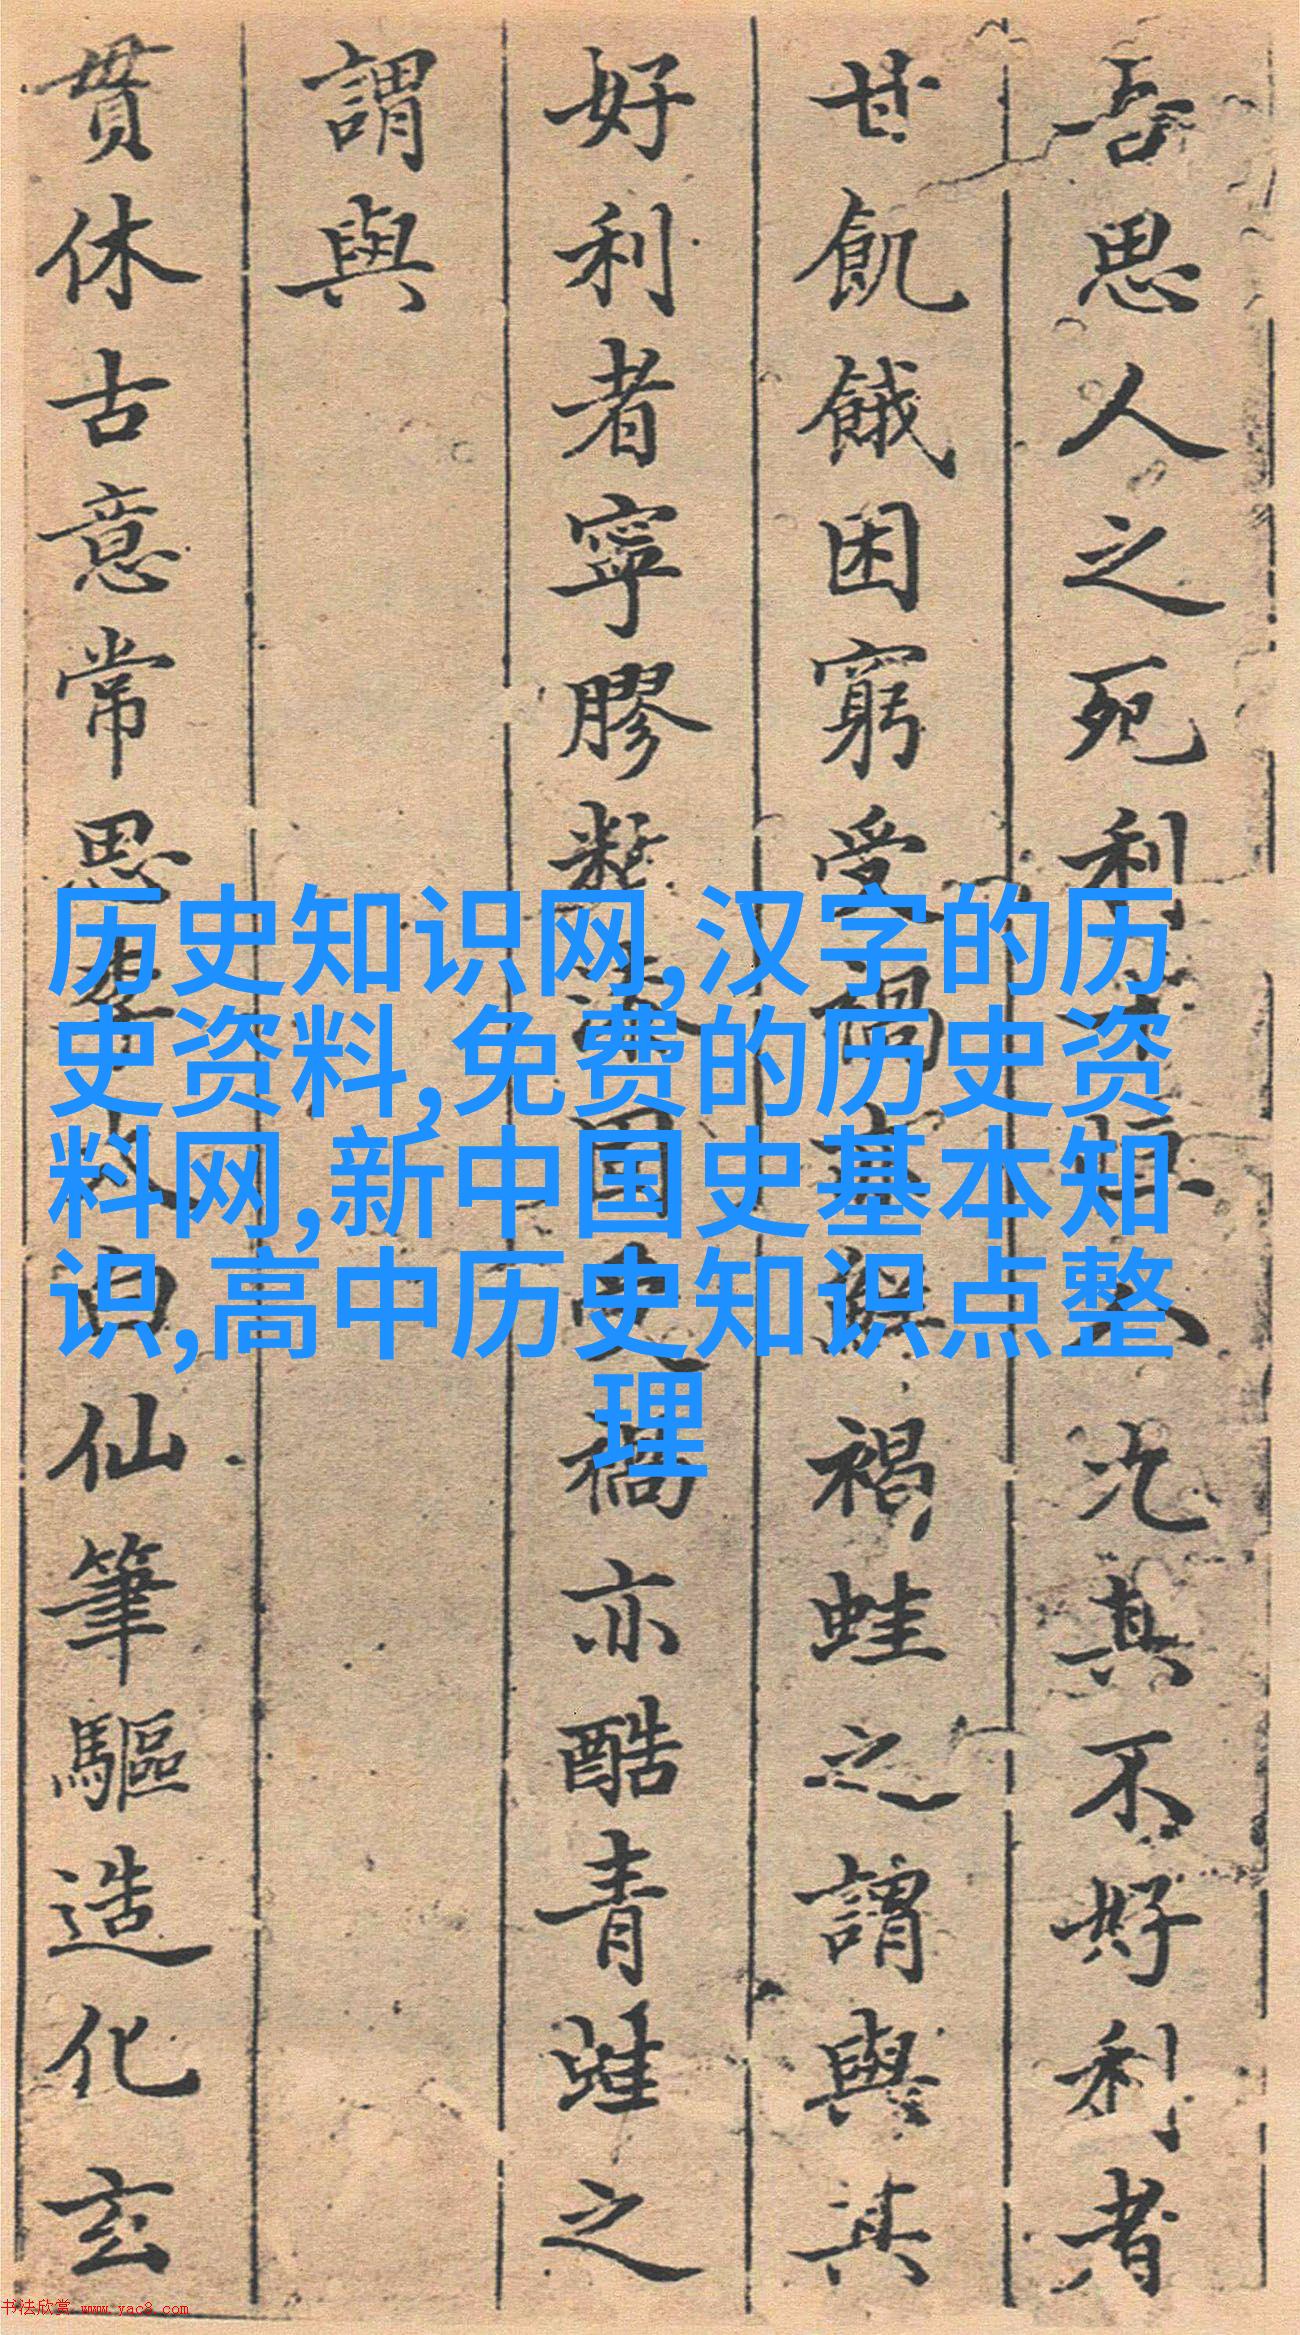 吾思人之死利
况其不好利者
甘飢餓困窮受禍
褐蛙之謂與其
好利者寧膠
國
禍亦酷青蛙之
謂與
貫休古意常思李太白仙筆驅造化玄
历史知识网,汉字的历
史资料,免费的历史资
料网,新中国史基本知
识,高中历史知识点整
理
书法欣赏 www.yac8.com